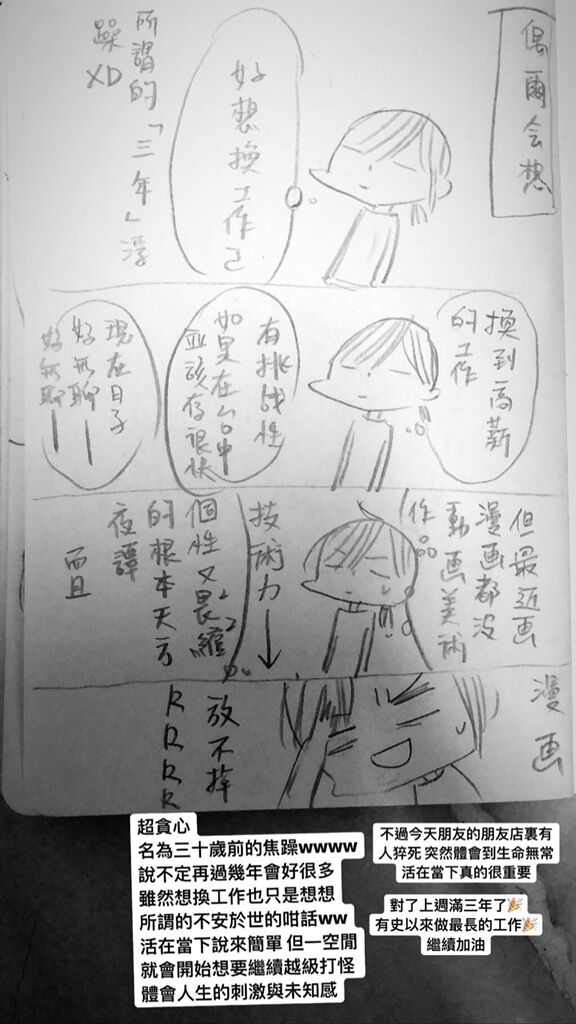 偶爾会想
好想換工作己
所謂的「三年」浮
躁XD
換到高薪
的工作
有挑战性
如果在台中
應該存很快
現在日子
好無聊——
好無聊——
但最近画
漫画都没
動画美術
作品
技術力↓
個性又畏縮
的根本天方
夜譚
而且
漫画
放不掉
RRRR
超貪心
名為三十歲前的焦躁wwww
說不定再過幾年會好很多
雖然想換工作也只是想想
所謂的不安於世的呥話ww
活在當下說來簡單 但一空閒
就會開始想要繼續越級打怪
體會人生的刺激與未知感
不過今天朋友的朋友店裏有
人猝死 突然體會到生命無常
活在當下真的很重要
對了上週滿三年了🎉
有史以來做最長的工作🎉
繼續加油